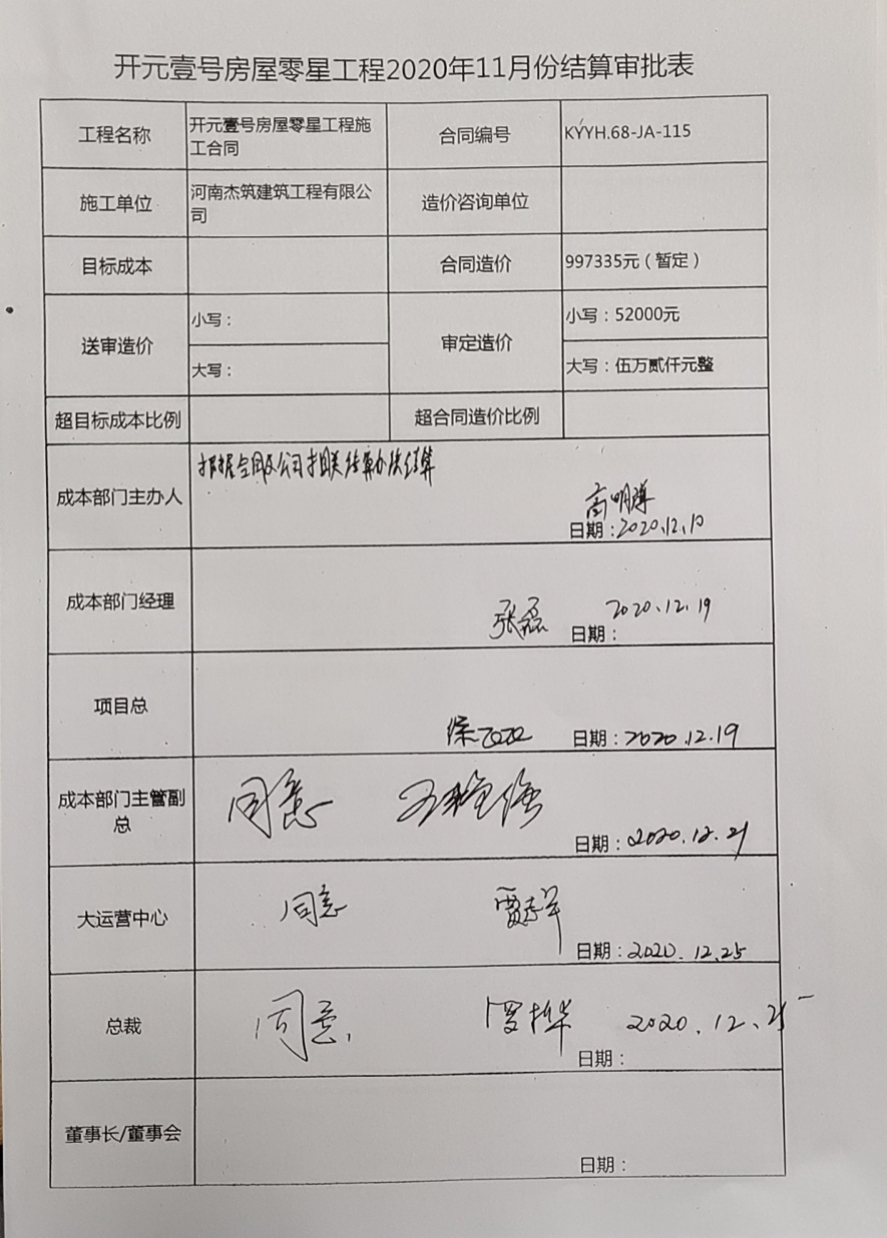 开元壹号房屋零星工程2020年11月份结算审批表
工程名称
开元壹号房屋零星工程施
工合同
合同编号
KYYH.68-JA-115
施工单位
河南杰筑建筑工程有限公
司
造价咨询单位
目标成本
合同造价
997335元（暂定）
送审造价
小写：
大写：
审定造价
小写：52000元
大写：伍万贰仟元整
超目标成本比例
超合同造价比例
成本部门主办人
根据合同及公司相关结算办法结算
日期：2020.12.10
成本部门经理
张磊
2020.12.19
日期：
项目总
日期：2020.12.19
成本部门主管副
总
同意
日期：2020.12.21
大运营中心
同意
日期：2020.12.25
总裁
同意
2020.12.25
日期：
董事长/董事会
日期：